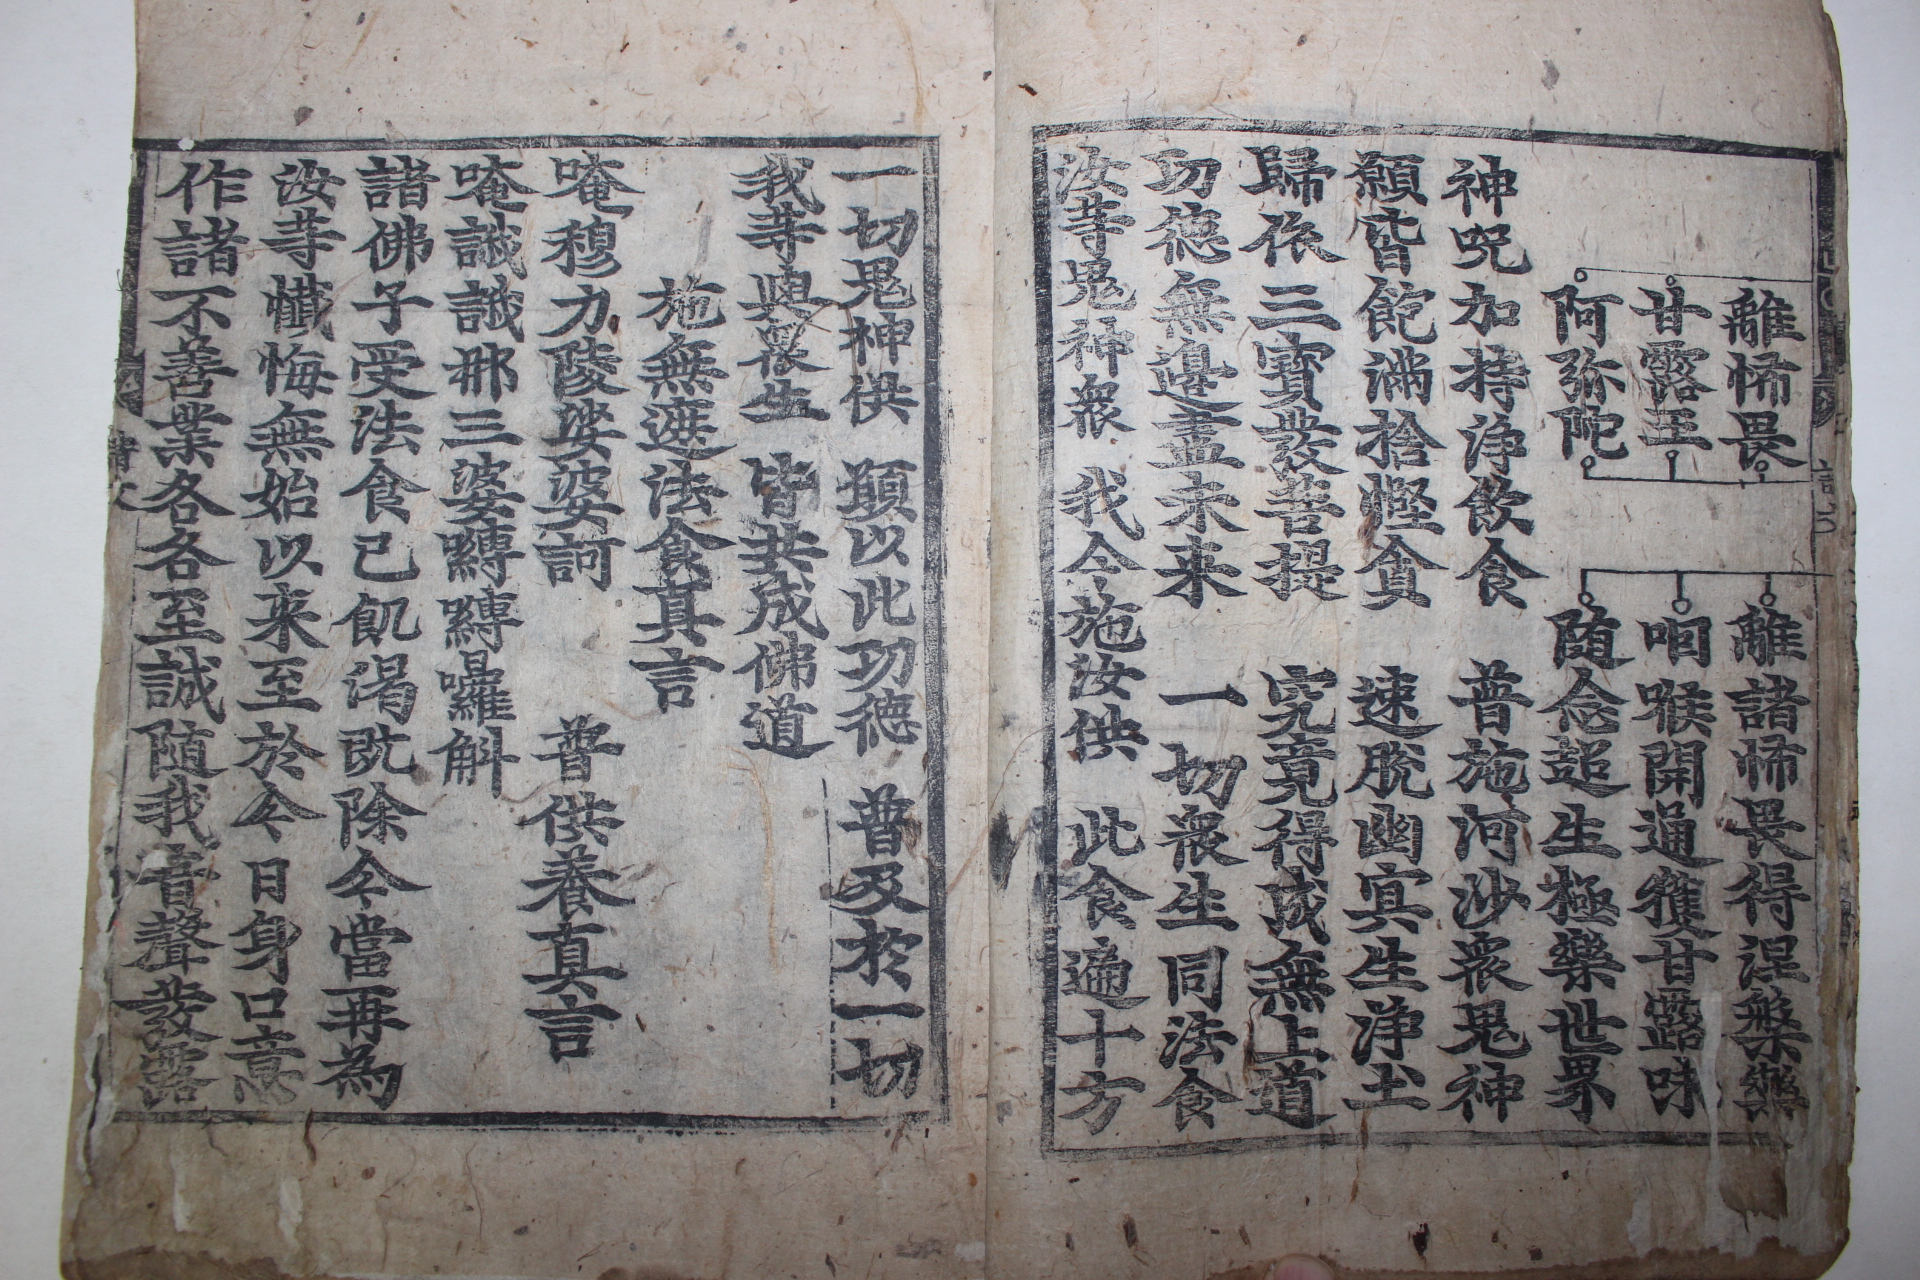 離怖畏 離諸怖畏得涅槃樂
甘露王 咽喉開通獲甘露味
阿弥陀 随念超生極樂世界
神呪加持淨飲食 普施河沙衆鬼神
願皆飽滿捨慳貪 速脫幽冥生淨土
歸依三寶發菩提 究竟得成無上道
功德無邊盡未来 一切衆生同法食
汝等鬼神衆 我今施汝供 此食遍十方
一切鬼神供 願以此功德 普及於一切
我等與衆生 皆共成佛道
施無遮法食真言
唵穆力陵娑婆訶 普供養真言
唵誐誐那三婆縛縛囉斛
諸佛子受法食已飢渴既除今當再為
汝等懺悔無始以来至於今日身口意
作諸不善業各各至誠随我音聲發露